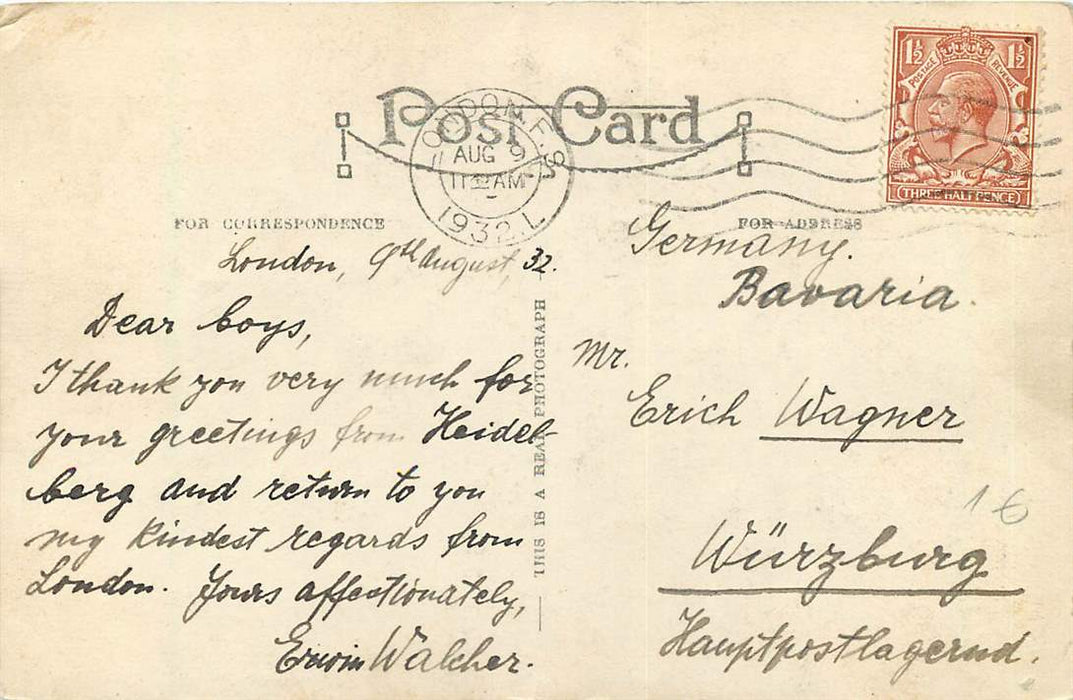 Post Card
LONDON. F.S.
AUG 9
11 AM
1932
L
1½ 1½
POSTAGE REVENUE
THREE HALF PENCE
FOR CORRESPONDENCE
FOR ADDRESS
London, 9th August, 32.
Dear boys,
I thank you very much for
your greetings from Heidel-
berg and return to you
my kindest regards from
London. Yours affectionately,
Erwin Walcher.
THIS IS A REAL PHOTOGRAPH
Germany.
Bavaria.
Mr.
Erich Wagner
Würzburg
Hauptpostlagernd.
16